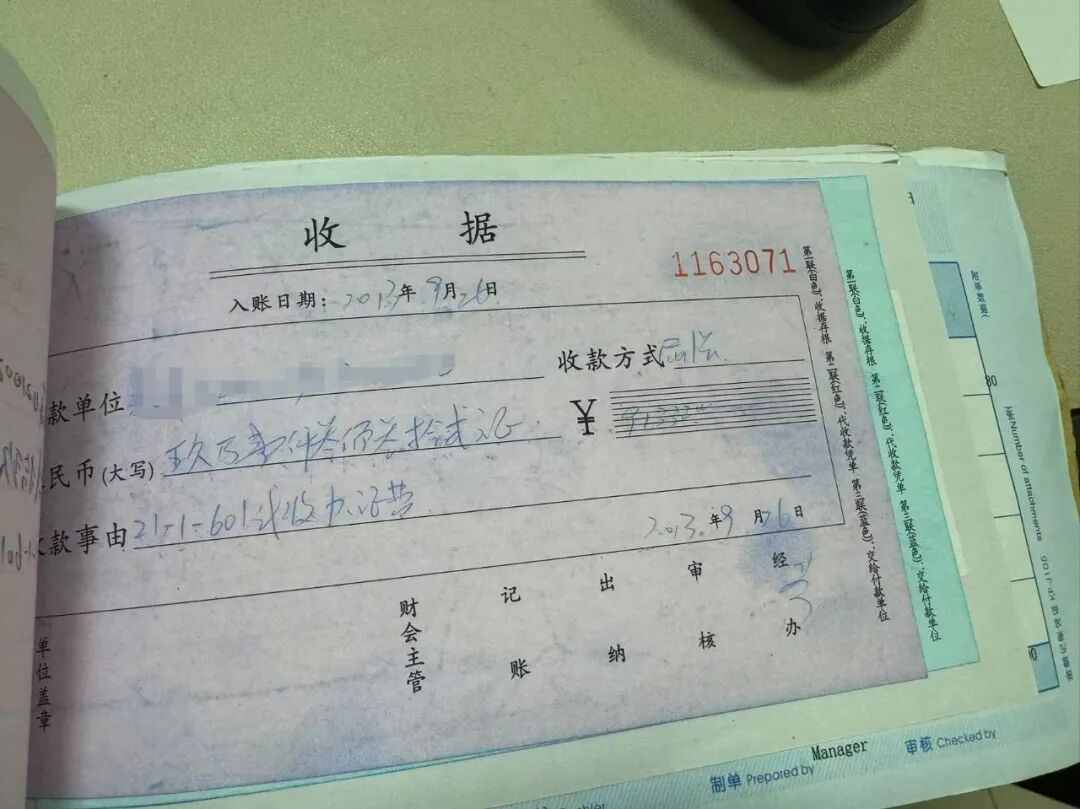 收 据
1163071
入账日期：2013年9月26日
款单位
收款方式
民币(大写) 玖万壹仟叁佰叁拾贰元
¥ 91332
款事由 21-1-601代收办证费
2013年9月26日
单位盖章
财会主管
记账
出纳
审核
经办
第一联(白色)：收据存根 第二联(红色)：代收款凭单 第三联(蓝色)：交给付款单位
第一联(白色)：收据存根 第二联(红色)：代收款凭单 第三联(蓝色)：交给付款单位
附单数据
张Number of attachments
制单 Prepared by
Manager
审核 Checked by